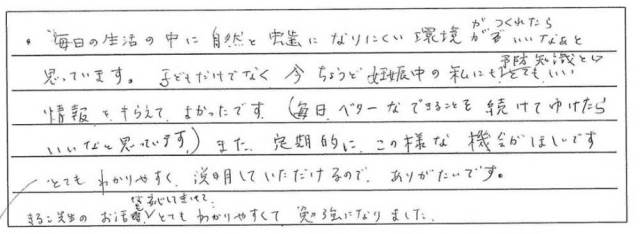 ・毎日の生活の中に自然と虫歯になりにくい環境がつくれたらいいなあと
思っています。子どもだけでなく今ちょうど妊娠中の私にも予防知識といとてもいい
情報をもらえてよかったです(毎日ベターなできることを続けてゆけたら
いいなと思っています)また、定期的に、この様な機会がほしいです
とてもわかりやすく説明していただけるので、ありがたいです。
まるこ先生のお話とてもわかりやすくて勉強になりました。